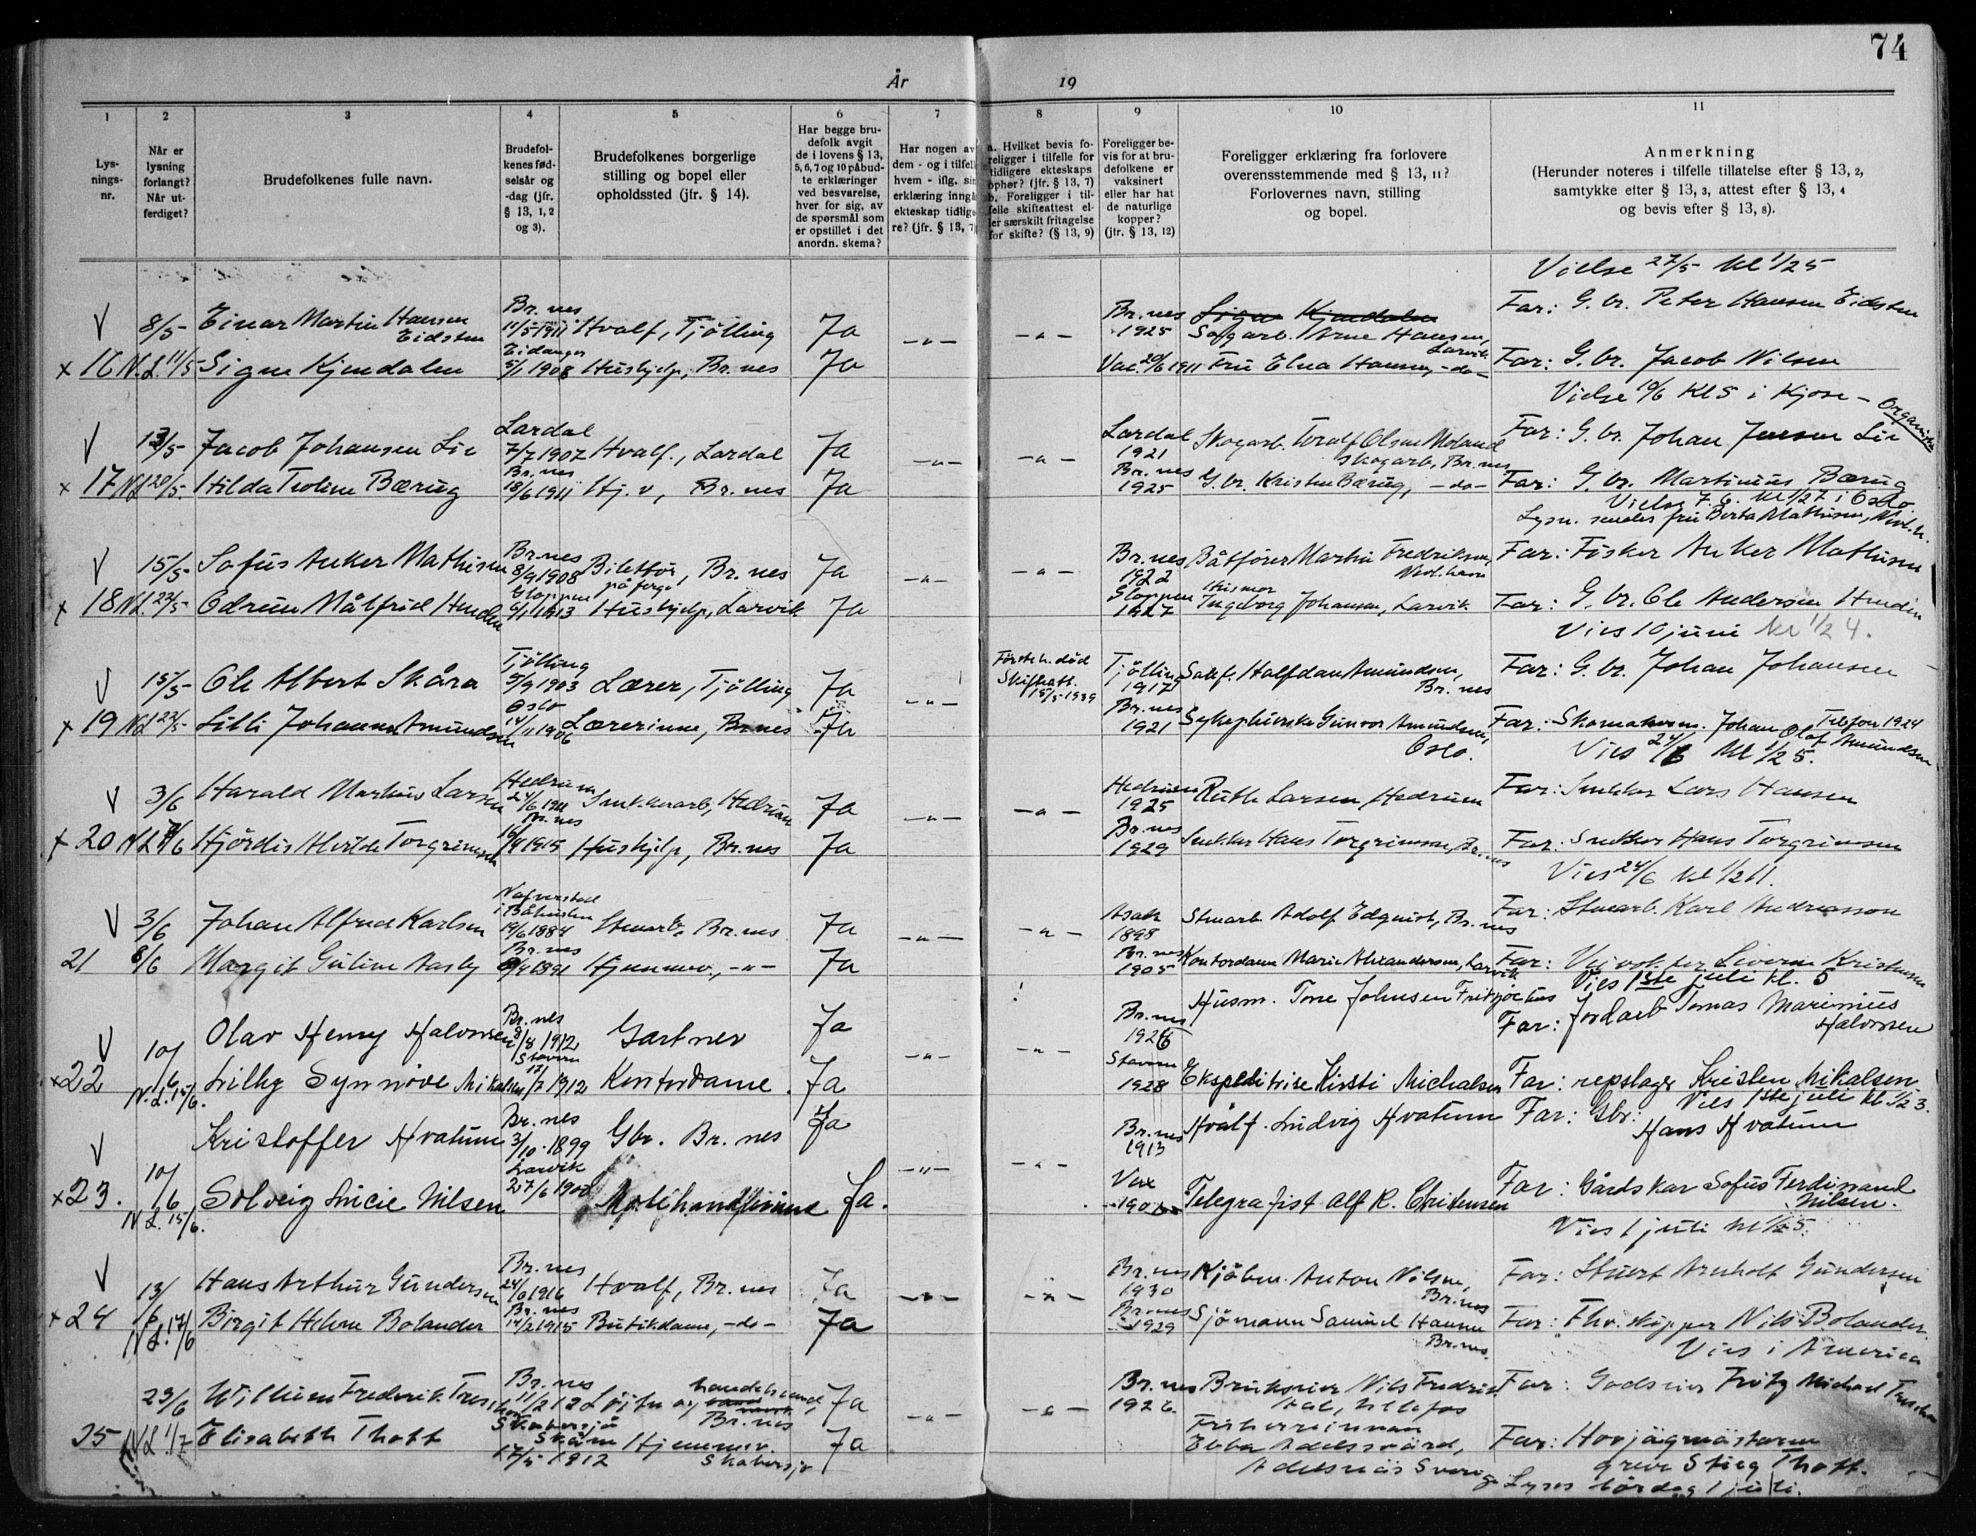 74
År 19
1 2 3 4 5 6 7 8 9 10 11
Lys-
nings-
nr.
Når er
lysning
forlangt?
Når ut-
ferdiget?
Brudefolkenes fulle navn.
Brudefol-
kenes fød-
selsår og
-dag (jfr.
§ 13, 1, 2
og 3).
Brudefolkenes borgerlige
stilling og bopel eller
opholdssted (jfr. § 14).
Har begge bru-
defolk avgit
de i lovens § 13,
5, 6, 7 og 10 påbud-
te erklæringer
ved besvarelse,
hver for sig, av
de spørsmål som
er opstillet i det
anordn. skema?
Har nogen av
dem - og i tilfelle
hvem - iflg. sin
erklæring inngå
ekteskap tidlige
re? (jfr. § 13, 7)
a. Hvilket bevis fo-
religger i tilfelle for
tidligere ekteskaps
ophør? (jfr. § 13, 7)
b. Foreligger i til-
felle skifteattest el-
ler særskilt fritagelse
for skifte? (§ 13, 9)
Foreligger be-
vis for at bru-
defolkene er
vaksinert
eller har hat
de naturlige
kopper?
(jfr. § 13, 12)
Foreligger erklæring fra forlovere
overensstemmende med § 13, 11?
Forlovernes navn, stilling
og bopel.
Anmerkning
(Herunder noteres i tilfelle tillatelse efter § 13, 2,
samtykke efter § 13, 3, attest efter § 13, 4
og bevis efter § 13, 8).
Vielse 27/5 kl 1/2 5
V 8/5 Einar Martin Hansen Eidsten Br.nes 11/5 1911 Hvalf, Tjølling Ja -"- -"- Br.nes 1925 Skogarb. Arne Hansen, Larvik Far: G. br. Peter Hansen Eidsten
x 16 N.L. 11/5 Signe Kjendalen Eidanger 5/1 1908 Hushjelp, Br.nes Ja Vac. 20/6 1911 Fru Elna Hansen, -do- Far: G. br. Jacob Nilsen
Vielse 10/6 Kl 5 i Kjose - Organist
V 13/5 Jacob Johansen Lie Lardal 7/7 1907 Hvalf., Lardal Ja -"- -"- Lardal 1921 Skogarb. Toralf Olsen Moland skogarb, Br.nes Far: G. br. Johan Jensen Lie
x 17 NL 20/5 Hilda Troline Bærug Br.nes 18/6 1911 Hj. v, Br.nes Ja Br.nes 1925 G. br. Kristen Bærug, -do- Far: G. br. Martinius Bærug
Vielse 7.6. kl 1/2 7 i Oslo.
Lysn. sendes fru Berta Mathisen,
V 15/5 Sofus Anker Mathisen Br.nes 8/9 1908 Billettør, på ferge Br.nes Ja -"- -"- Br.nes 1922 Båtfører Martin Fredriksen, Far: Fisker Anker Mathisen
x 18 N.L. 23/5 Odrun Målfrid Henden Gloppen 6/1 1913 Hushjelp, Larvik Ja Gloppen 1927 Husmor Ingeborg Johansen, Larvik Far: G. br. Ole Andersen Henden
Vies 10 juni kl 1/2 4.
V 15/5 Ole Albert Skåra Tjølling 5/9 1903 Lærer, Tjølling Ja -"- Første h. død Skifteatt. 15/5-1939 Tjølling 1917 Sakf. Halfdan Amundsen, Br.nes Far: G. br. Johan Johansen
x 19 NL 23/5 Lilli Johanne Amundsen Oslo 14/11 1906 Lærerinne, Br.nes Ja Br.nes 1921 Sykepleierske Gunvor Amundsen, Oslo. Far: Skomakerm. Johan Olaf Amundsen Telefon 1924
Vies 24/6 kl 1/2 5.
V 3/6 Harald Markus Larsen Hedrum 24/6 1911 Snekkerarb, Hedrum Ja -"- -"- Hedrum 1925 Ruth Larsen, Hedrum Far: Snekker Lars Hansen
x 20 NL 7/6 Hjørdis Alvilde Torgrimsen Br.nes 16/9 1915 Hushjelp, Br.nes Ja Br.nes 1929 Snekker Hans Torgrimsen, Br.nes Far: Snekker Hans Torgrimsen
Vies 24/6 kl 1/2 11.
V 3/6 Johan Alfred Karlsen i Båhuslen 19/6 1884 Stenarb, Br.nes Ja -"- -"- Asak 1898 Stenarb. Adolf Edquist, Br.nes Far: Stenarb. Karl Andreasson
21 8/6 Margit Guline Aasly Br.nes 8/9 1891 Hjemmev., -"- Ja Br.nes 1905 Kontordame Marie Alexandersen, Larvik Far: Veivokter Severin Kristensen
Vies 1ste juli kl. 5
V 10/6 Olav Henry Halvorsen Br.nes 3/8 1912 Gartner Ja -"- -"- Br.nes 1926 Husm. Tone Johnsen Fritzøehus Far: Jordarb Tomas Marinius Halvorsen
x 22 N.L. 15/6. Lilly Synnøve Mikalsen Stavern 17/7 1912 Kontordame. Ja Stavern 1928 Ekspeditrise Kirsti Michalsen Far: repslager Kristen Mikalsen
Vies 1ste juli kl 1/2 3.
V 10/6 Kristoffer Hvatum Br.nes 3/10.1899 Gbr. Br.nes Ja -"- -"- Br.nes 1913 Hvalf. Ludvig Hvatum Far: Gbr. Hans Hvatum
x 23. N.L. 15/6. Solveig Lucie Nilsen Larvik 27/6 1900 Motehandlerinne Ja. Vax Telegrafist Alf R. Christensen Far: Gårdskar Sofus Ferdinand Nilsen.
Vies 1 juli kl 1/2 5.
V 13/6 Hans Arthur Gundersen Br.nes 1916 Hvalf, Br.nes Ja -"- -"- Br.nes 1930 Kjøbm. Anton Nilsen, Br.nes Far: Stuert Arnholt Gundersen
x 24 N.L. 17/6 Birgit Helene Bolander Br.nes 14/2 1915 Butikdame, -do- Ja Br.nes 1929 Sjømann Samuel Hansen Br.nes. Far: Fhv. skipper Nils Bolander
Vies i America
23/6 Wilhelm Frederik Treschow Br.nes 11/2 12 Løitn og Br.nes Ja -"- -"- Br.nes 1926. Brukseier Nils Fredrik Aal, Ulefos Far: Godseier Fritz Michael Treschow
25 NL 1/7 Elisabeth Thott Skabersjø Skåne 17/5 1912 Hjemmev. Skabersjø Ja Friherreinnan Ebba Adelswärd, Adelsnäs Sverige Far: Hovjägmästaren greve Stieg Thott.
Lyses lørdag 1 juli.